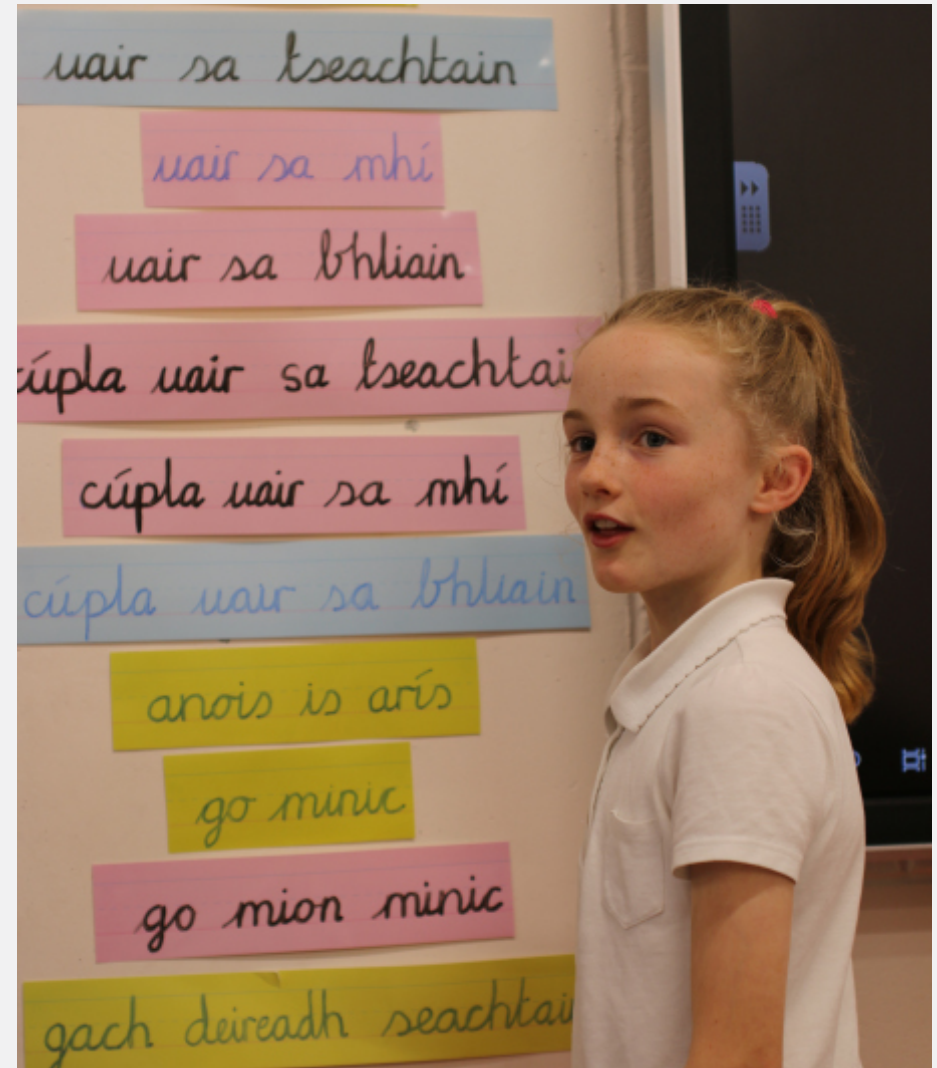 uair sa tseachtain
uair sa mhí
uair sa bhliain
cúpla uair sa tseachtai
cúpla uair sa mhí
cúpla uair sa bhliain
anois is arís
go minic
go mion minic
gach deireadh seachtain